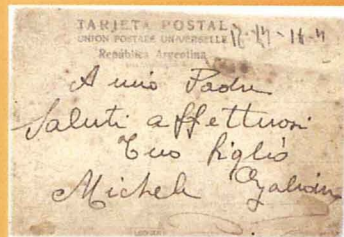 TARJETA POSTAL
UNION POSTALE UNIVERSELLE
República Argentina
A mio Padre
Saluti affettuosi
Tuo figlio
Michele